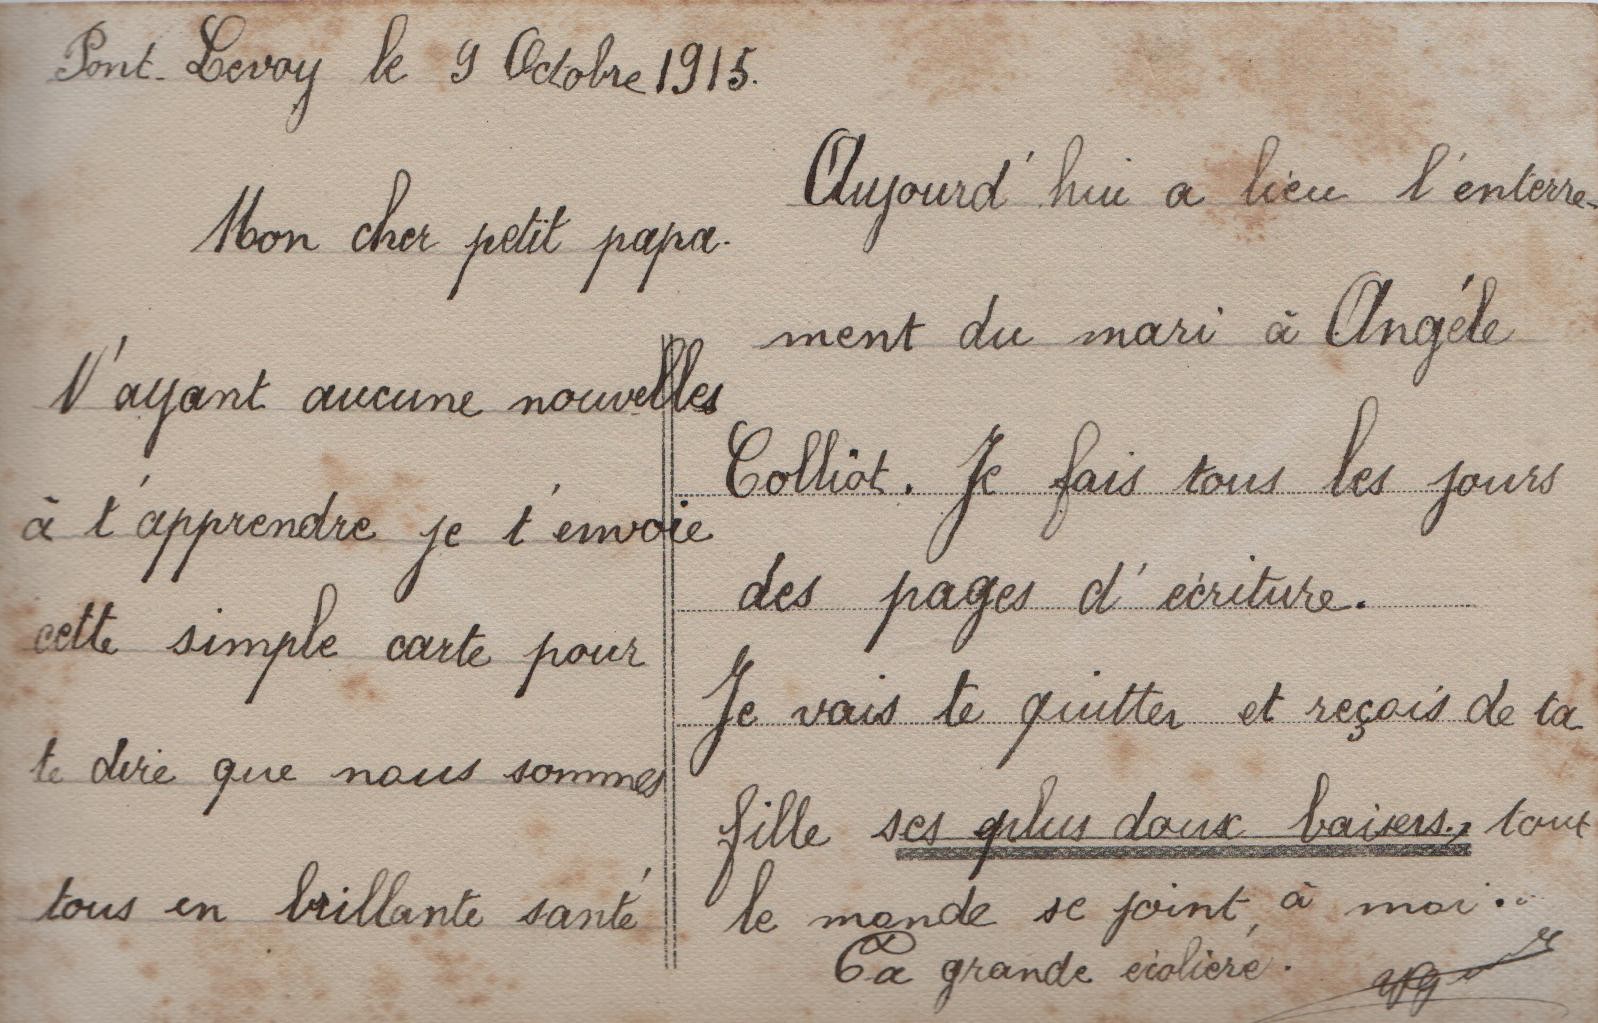 Pont-Levoy le 9 Octobre 1915.
Mon cher petit papa.
N'ayant aucune nouvelles
à t'apprendre je t'envoie
cette simple carte pour
te dire que nous sommes
tous en brillante santé
Aujourd'hui a lieu l'enterre-
ment du mari à Angéle
Colliot. Je fais tous les jours
des pages d'écriture.
Je vais te quitter et reçois de ta
fille ses plus doux baisers, tout
le monde se joint à moi..
Ta grande écoliére.